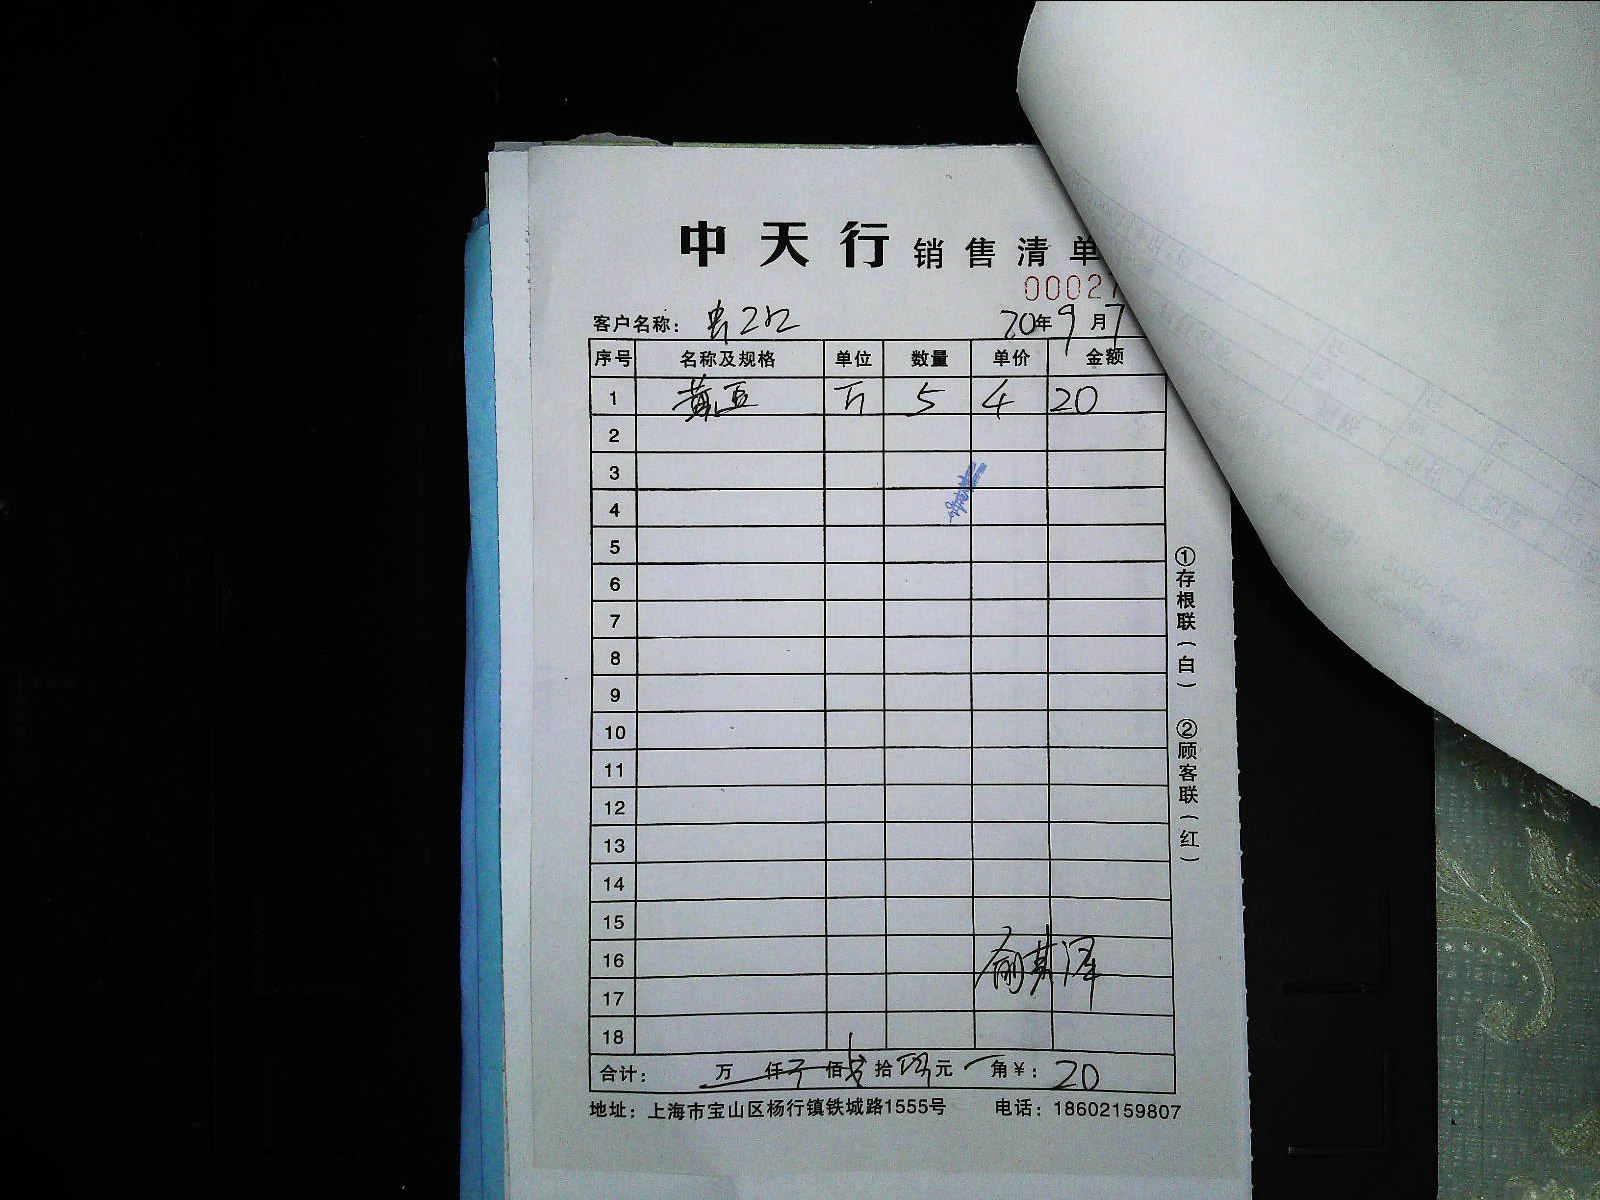 中天行 销售清单
00027
客户名称： 20年9月7
序号 名称及规格 单位 数量 单价 金额
1 黄豆 斤 5 4 20
2
3
4
5
6
7
8
9
10
11
12
13
14
15
16
17
18
合计： 万 仟 佰 拾 元 角￥：20
地址：上海市宝山区杨行镇铁城路1555号 电话：18602159807
①存根联（白） ②顾客联（红）